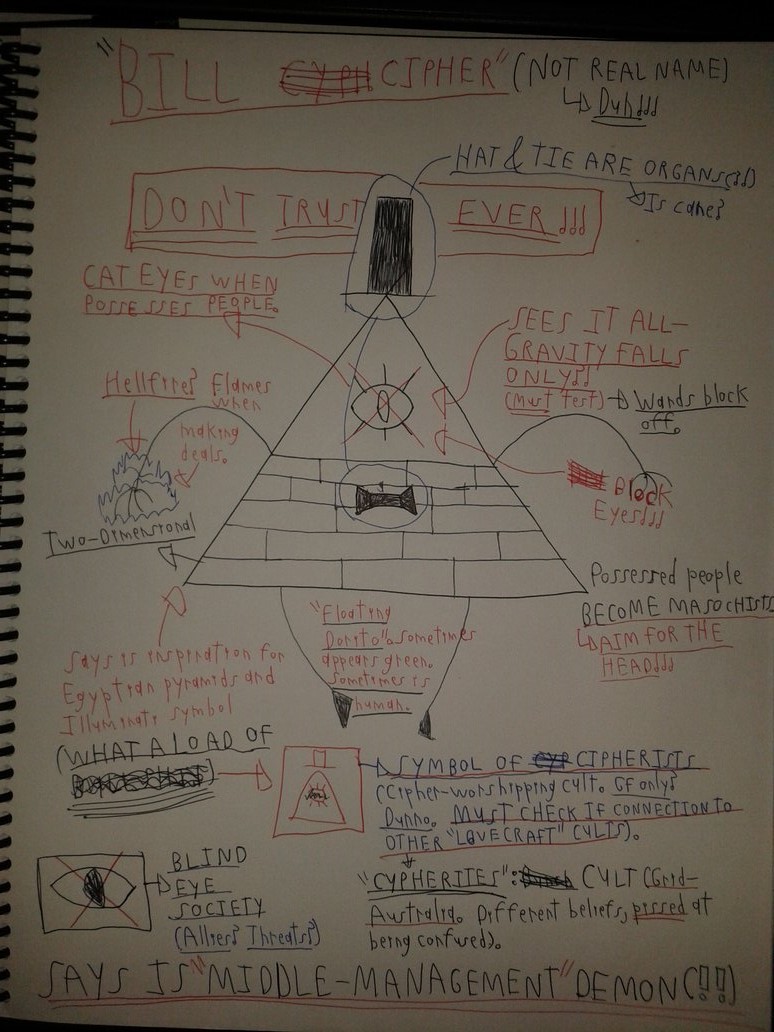 "BILL CIPHER" (NOT REAL NAME)
↳ Duh!!!
HAT & TIE ARE ORGANS(?!)
Is cane?
DON'T TRUST EVER!!!
CAT EYES WHEN
POSSESSES PEOPLE.
SEES IT ALL-
GRAVITY FALLS
ONLY?!
(Must Test) → Wards block
off.
Hellfire? Flames
when
making
deals.
Block
Eyes!!!
Two-Dimensional
Possessed people
BECOME MASOCHISTS
↳ AIM FOR THE
HEAD!!!
"Floating
Dorito". Sometimes
appears green.
Sometimes is
human.
Says is inspiration for
Egyptian pyramids and
Illuminati symbol
(WHAT A LOAD OF
)
SYMBOL OF CIPHERISTS
(Cipher-worshipping cult. GF only?
Dunno. MUST CHECK IF CONNECTION TO
OTHER "LOVECRAFT" CULTS).
BLIND
EYE
SOCIETY
(Allies? Threats?)
"CYPHERITES": CULT (Grid-
Australia. Different beliefs, pissed at
being confused).
SAYS IS "MIDDLE-MANAGEMENT" DEMON(?!?!)